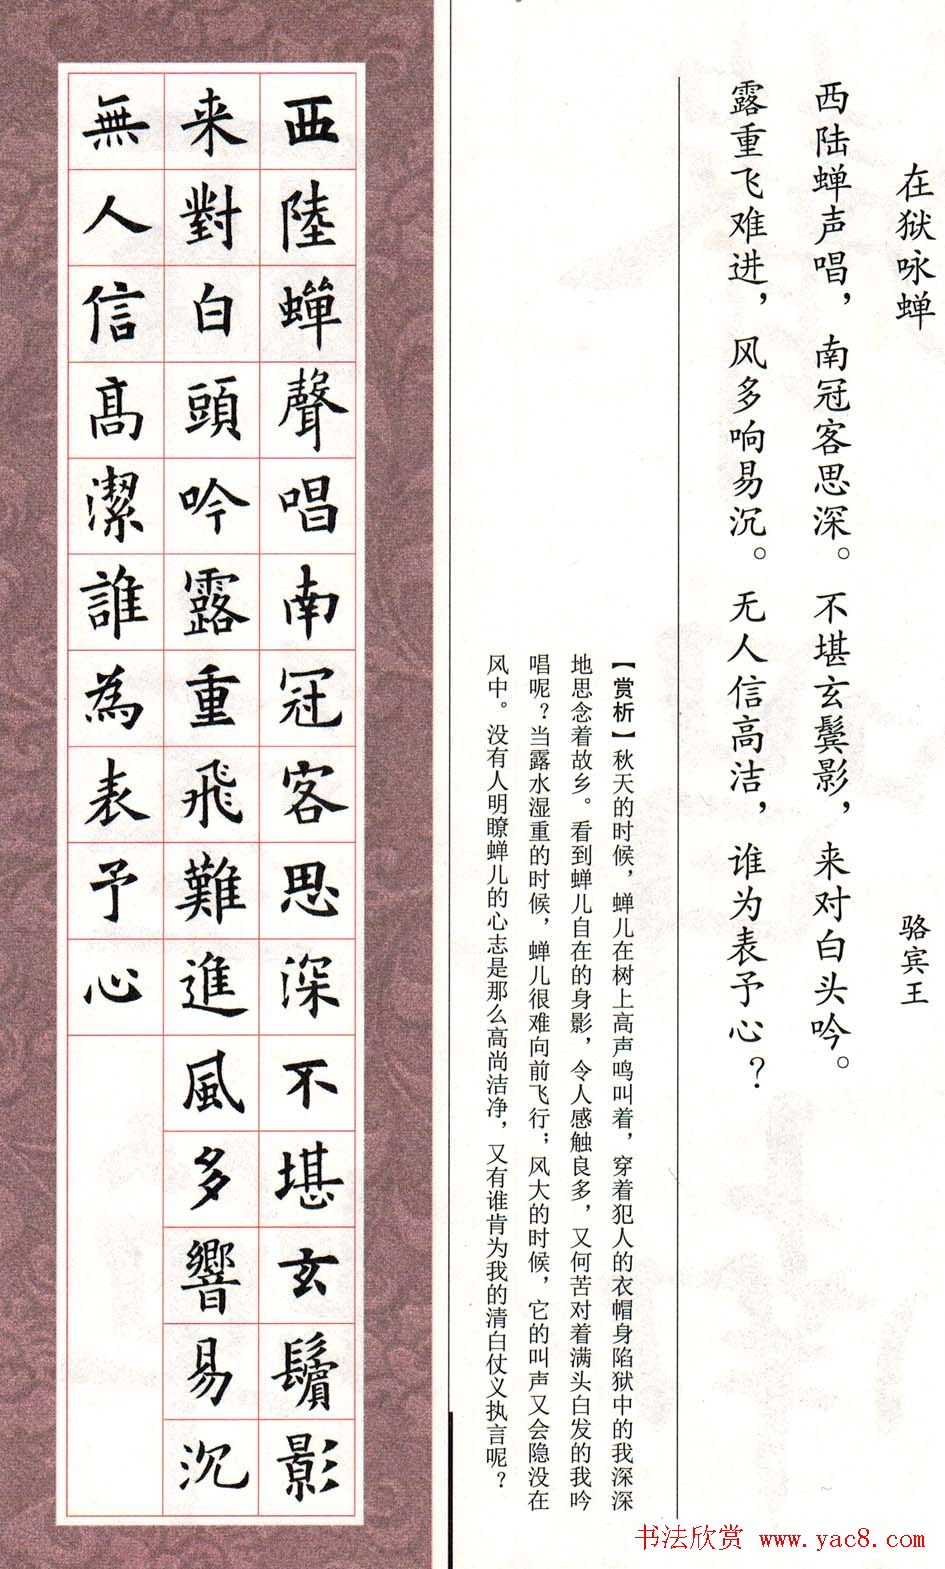 在狱咏蝉
骆宾王
西陆蝉声唱，南冠客思深。不堪玄鬓影，来对白头吟。
露重飞难进，风多响易沉。无人信高洁，谁为表予心？
【赏析】秋天的时候，蝉儿在树上高声鸣叫着，穿着犯人的衣帽身陷狱中的我深深
地思念着故乡。看到蝉儿自在的身影，令人感触良多，又何苦对着满头白发的我吟
唱呢？当露水湿重的时候，蝉儿很难向前飞行；风大的时候，它的叫声又会隐没在
风中。没有人明瞭蝉儿的心志是那么高尚洁净，又有谁肯为我的清白仗义执言呢？
西陸蟬聲唱南冠客思深不堪玄鬢影
来對白頭吟露重飛難進風多響易沉
無人信髙潔誰為表予心
书法欣赏 www.yac8.com